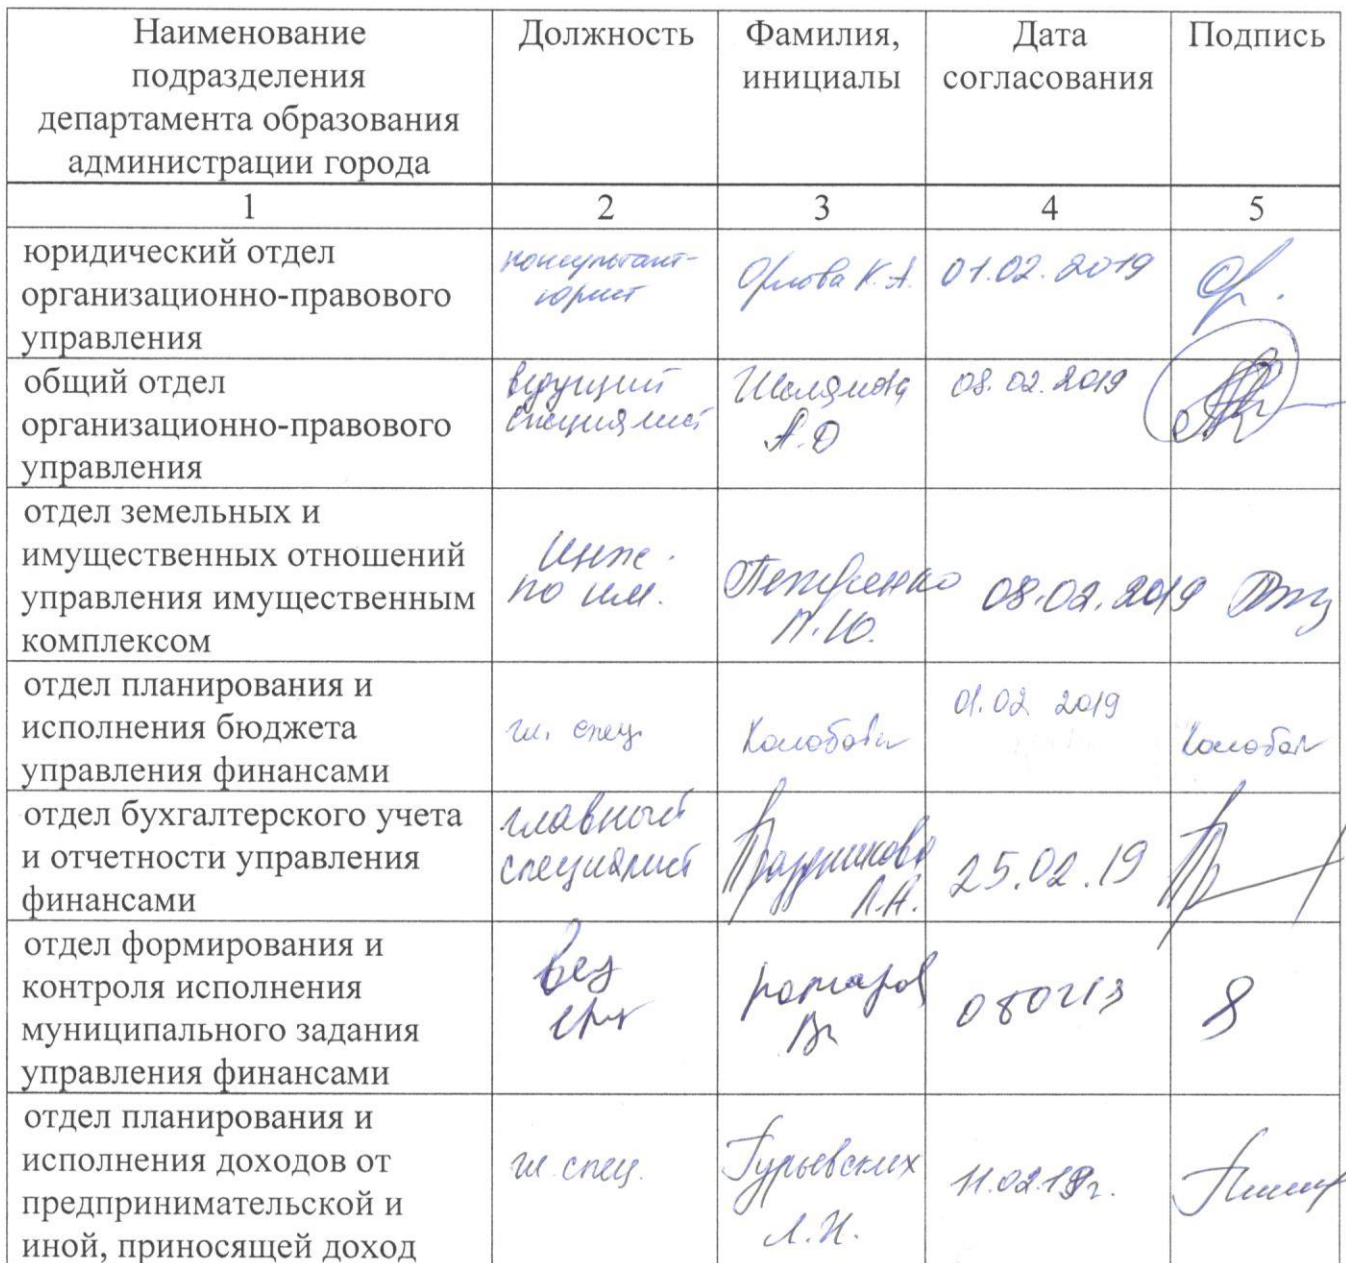 Наименование
подразделения
департамента образования
администрации города
Должность
Фамилия,
инициалы
Дата
согласования
Подпись
1 2 3 4 5
юридический отдел
организационно-правового
управления
консультант-
юрист
Орлова К.А.
01.02.2019
общий отдел
организационно-правового
управления
ведущий
специалист
А.О
08.02.2019
отдел земельных и
имущественных отношений
управления имущественным
комплексом
инж.
по им.
08.02.2019
отдел планирования и
исполнения бюджета
управления финансами
гл. спец.
01.02 2019
отдел бухгалтерского учета
и отчетности управления
финансами
главный
специалист
Праздникова
Л.А.
25.02.19
отдел формирования и
контроля исполнения
муниципального задания
управления финансами
вед
отдел планирования и
исполнения доходов от
предпринимательской и
иной, приносящей доход
гл. спец.
Гурьевских
Л.Н.